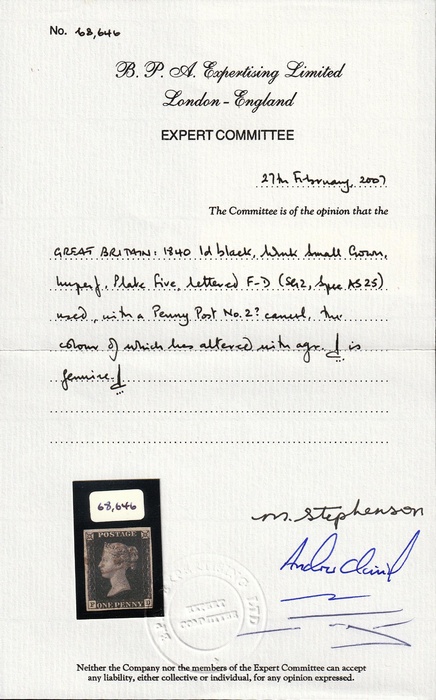 No. 68,646
B. P. A. Expertising Limited
London - England
EXPERT COMMITTEE
27th February, 2007
The Committee is of the opinion that the
GREAT BRITAIN: 1840 1d black, Wmk Small Crown,
Imperf, Plate Five, lettered F-D (SG2, Spec AS25)
used, with a Penny Post No. 2? cancel, the
colour of which has altered with age. is
genuine.
68,646
POSTAGE
F ONE PENNY D
M. Stephenson
EXPERT
COMMITTEE
LTD
Neither the Company nor the members of the Expert Committee can accept
any liability, either collective or individual, for any opinion expressed.